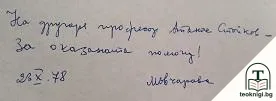 На другаря професор Атанас Стойков –
За оказаната помощ!
23 X. 78 Мовчарова
teoknigi.bg